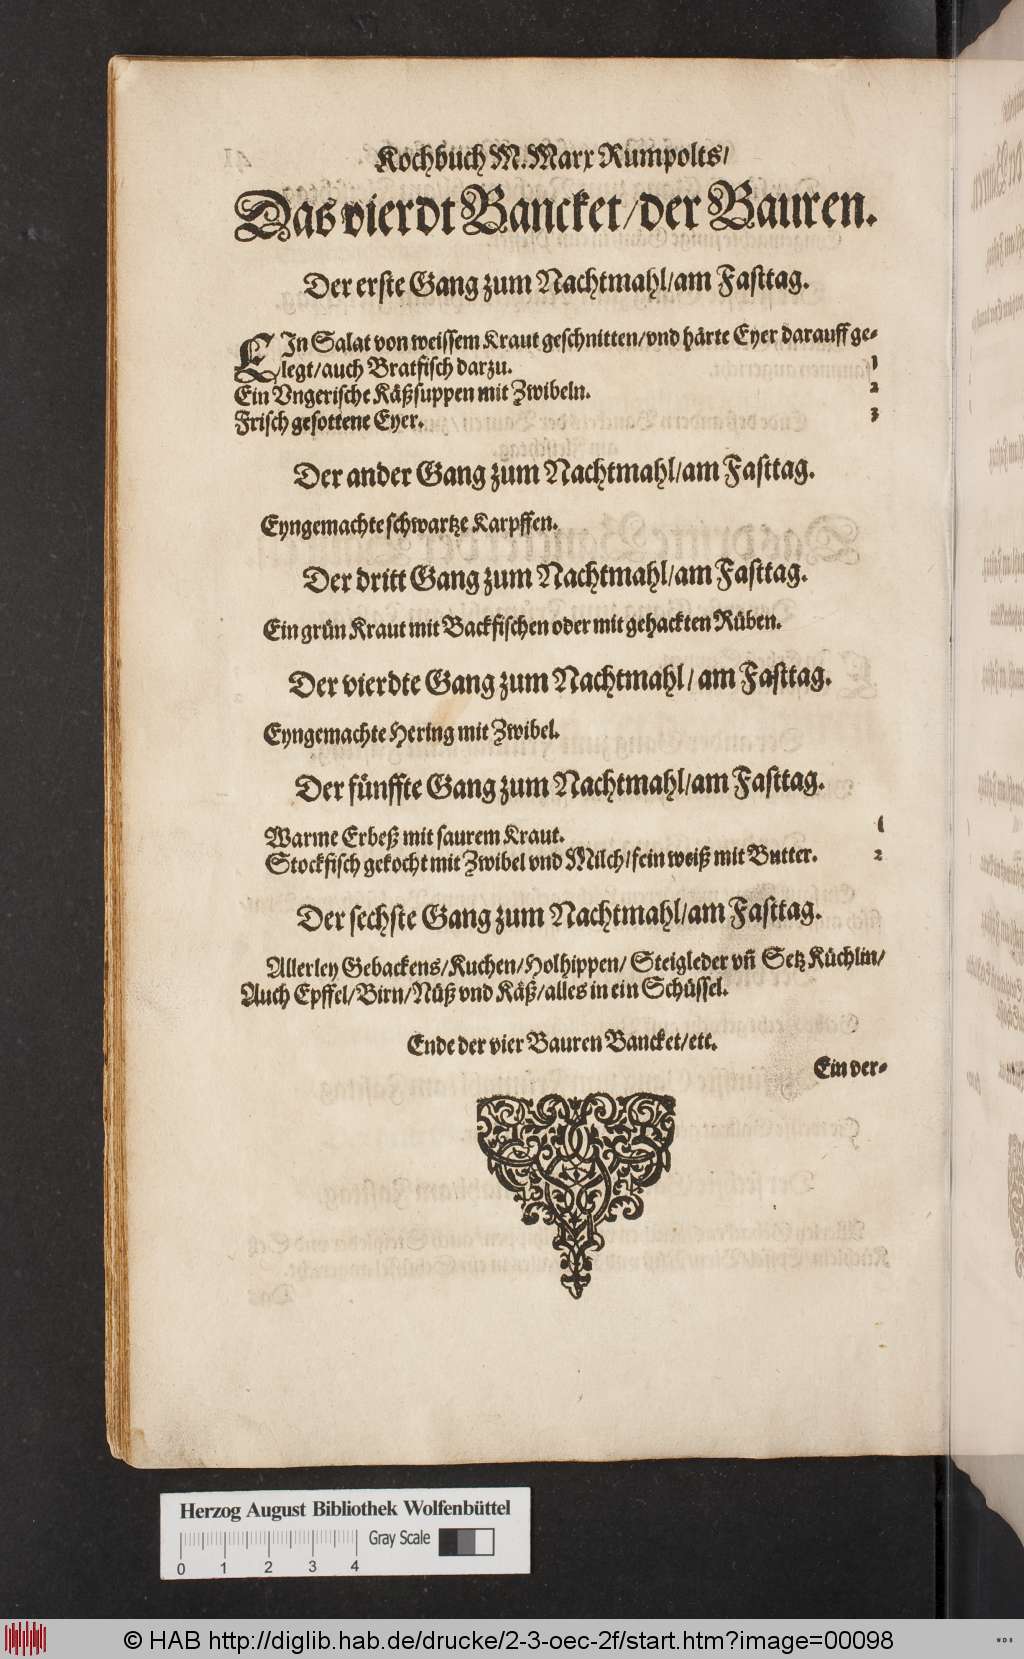 Kochbuch M. Marx Rumpolts/
Das vierdt Bancket/der Bauren.
Der erste Gang zum Nachtmahl/am Fasttag.
EIn Salat von weissem Kraut geschnitten/vnd härte Eyer darauff ge-
legt/auch Bratfisch darzu. 1
Ein Vngerische Käßsuppen mit Zwibeln. 2
Frisch gesottene Eyer. 3
Der ander Gang zum Nachtmahl/am Fasttag.
Eyngemachte schwartze Karpffen.
Der dritt Gang zum Nachtmahl/am Fasttag.
Ein grün Kraut mit Backfischen oder mit gehackten Rüben.
Der vierdte Gang zum Nachtmahl/ am Fasttag.
Eyngemachte Hering mit Zwibel.
Der fünffte Gang zum Nachtmahl/am Fasttag.
Warme Erbeß mit saurem Kraut. 1
Stockfisch gekocht mit Zwibel vnd Milch/fein weiß mit Butter. 2
Der sechste Gang zum Nachtmahl/am Fasttag.
Allerley Gebackens/Kuchen/Holhippen/ Steigleder vñ Setz Küchlin/
Auch Epffel/Birn/Nüß vnd Käß/alles in ein Schüssel.
Ende der vier Bauren Bancket/ett.
Ein ver-
Herzog August Bibliothek Wolfenbüttel
Gray Scale
0 1 2 3 4
© HAB http://diglib.hab.de/drucke/2-3-oec-2f/start.htm?image=00098